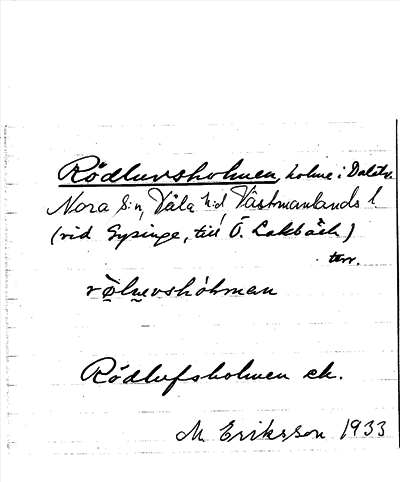 Rödluvsholmen, holme i Dalälv.
Nora s:n, Våla h:d Västmanlands l
(vid Gysinge, till Ö. Lakbäck)
terr.
rö̀luvshòlman
Rödlufsholmen ek.
M. Eriksson 1933